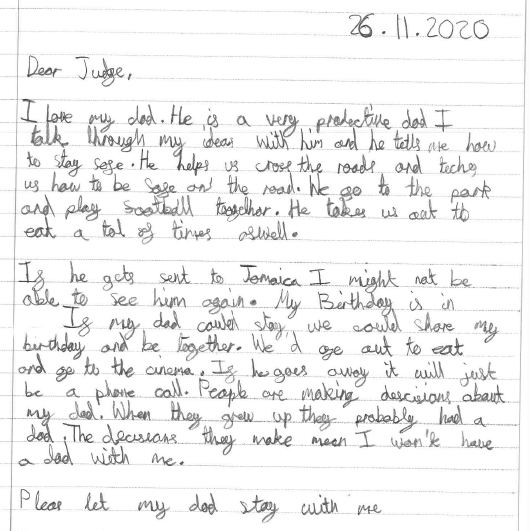 26.11.2020
Dear Judge,
I love my dad. He is a very prodective dad I
talk through my ideas with him and he tells me how
to stay sage. He helps us cross the roads and techs
us how to be sage on the road. We go to the park
and play sootball together. He takes us out to
eat a tol of times aswell.
Is he gets sent to Jamaica I might not be
able to see him again. My Birthday is in
Is my dad could stay, we could share my
birthday and be together. We'd go out to eat
and go to the cinema. Is he goes away it will just
be a phone call. People are making descisions about
my dad. When they grew up they probably had a
dad. The decisions they make mean I won't have
a dad with me.
Pleas let my dad stay with me